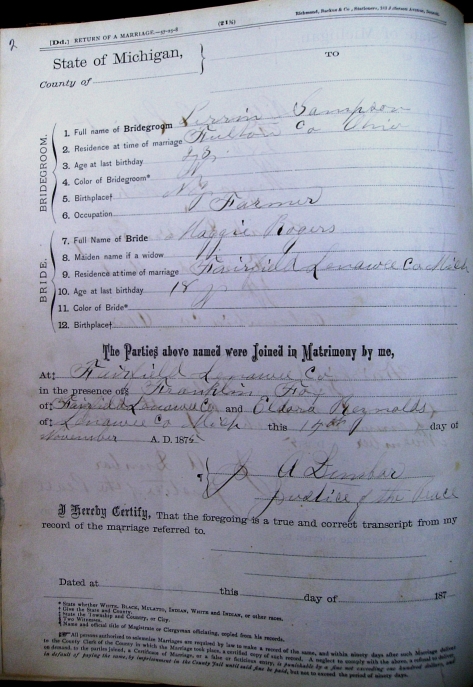 2
[Dd.] RETURN OF A MARRIAGE.
(218)
State of Michigan,
County of
TO
BRIDEGROOM.
1. Full name of Bridegroom Sampson
2. Residence at time of marriage Fulton Co Ohio
3. Age at last birthday
4. Color of Bridegroom* W
5. Birthplace† N Y
6. Occupation Farmer
BRIDE.
7. Full Name of Bride Maggie Rogers
8. Maiden name if a widow
9. Residence at time of marriage Fairfield Lenawee Co Mich
10. Age at last birthday 18
11. Color of Bride* W
12. Birthplace†
The Parties above named were Joined in Matrimony by me,
At‡ Fairfield Lenawee Co
in the presence of§ Franklin Fox
of‡ Fairfield Lenawee Co and Eldora Reynolds
of‡ Lenawee Co Mich this day of
November A. D. 187
A Dunbar
Justice of the Peace
I Hereby Certify, That the foregoing is a true and correct transcript from my
record of the marriage referred to.
Dated at this day of 187
* State whether WHITE, BLACK, MULATTO, INDIAN, WHITE and INDIAN, or other races.
† Give the State and County.
‡ State the Township and County, or City.
§ Two Witnesses.
Name and official title of Magistrate or Clergyman officiating, copied from his records.
All persons authorized to solemnize Marriages are required by law to make a record of the same, and within ninety days after such Marriage deliver
to the County Clerk of the County in which the Marriage took place, a certified copy of such record. A neglect to comply with the above, a refusal to deliver,
on demand, to the parties joined, a Certificate of Marriage, or a false or fictitious entry, is punishable by a fine not exceeding one hundred dollars, and
in default of paying the same, by imprisonment in the County Jail until said fine be paid, but not to exceed the period of ninety days.